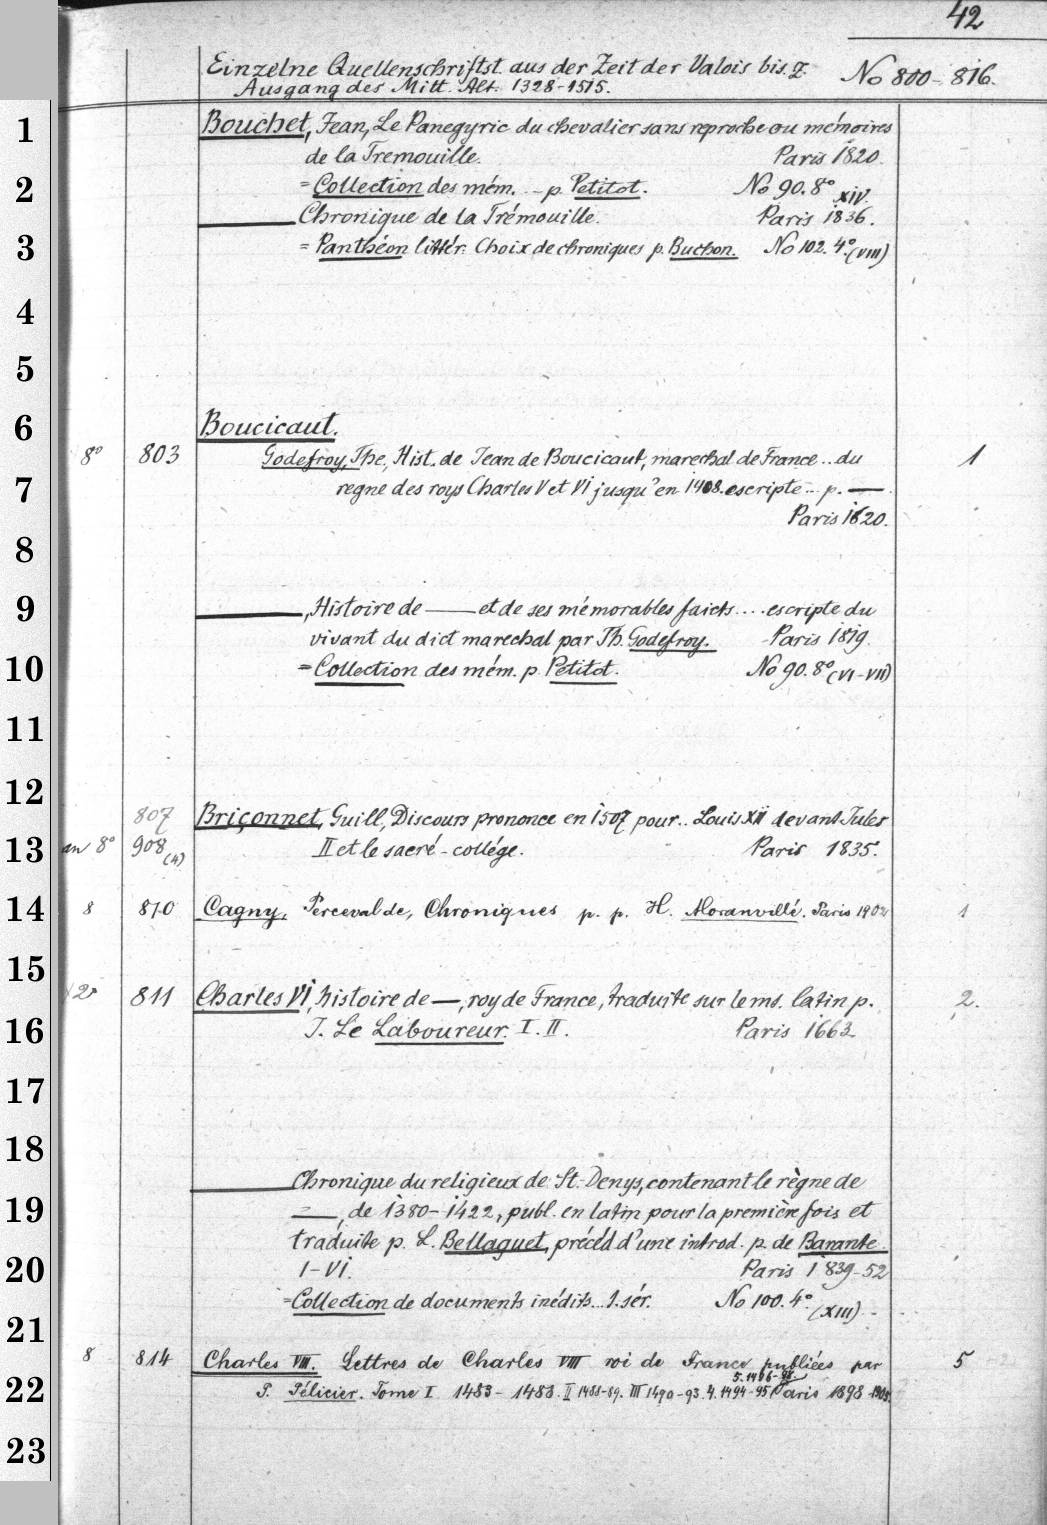 42
Einzelne Quellenschriftst. aus der Zeit der Valois bis z. No 800-816.
Ausgang des Mitt. Alt. 1328-1515.
1
Bouchet, Jean, Le Panegyric du chevalier sans reproche ou mémoires
de la Tremouille. Paris 1820.
2
= Collection des mém. - p. Petitot. No 90. 8° XIV.
Chronique de la Trémouille. Paris 1836.
3
= Panthéon littér. Choix de chroniques p. Buchon. No 102. 4° (VIII)
4
5
6
Boucicaut.
8° 803 Godefroy, The, Hist. de Jean de Boucicaut, marechal de France .. du 1
7
regne des roys Charles V et VI jusqu'en 1408. escripte ... p. —.
Paris 1620.
8
9
—, Histoire de — et de ses mémorables faicts .... escripte du
vivant du dict marechal par Th. Godefroy. Paris 1819.
10
= Collection des mém. p. Petitot. No 90. 8° (VI-VII)
11
12
807 Briçonnet, Guill, Discours prononce en 1507 pour .. Louis XII devant Jules
13
an 8° 908 (4) II et le sacré-collége. Paris 1835.
14
8 810 Cagny, Perceval de, Chroniques p. p. H. Moranvillé. Paris 1902 1
15
2° 811 Charles VI, histoire de —, roy de France, traduite sur le ms. latin p. 2.
16
J. Le Laboureur. I. II. Paris 1663
17
18
— Chronique du religieux de St.-Denys, contenant le règne de
19
—, de 1380-1422, publ. en latin pour la première fois et
traduite p. L. Bellaguet, précéd d'une introd. p. de Barante.
20
I-VI. Paris 1839-52
= Collection de documents inédits .. 1. sér. No 100. 4° (XIII)
21
8 814 Charles VIII. Lettres de Charles VIII roi de France publiées par 5
22
5. 1496-98.
P. Pélicier. Tome I 1483-1488. II 1488-89. III 1490-93. 4. 1494-95 Paris 1898-1905.
23